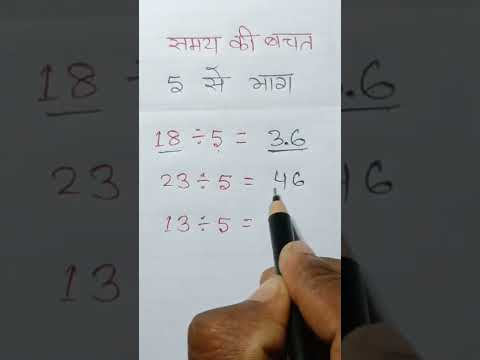 समय की बचत
5 से भाग
18 ÷ 5 = 3.6
23 ÷ 5 = 46
13 ÷ 5 =